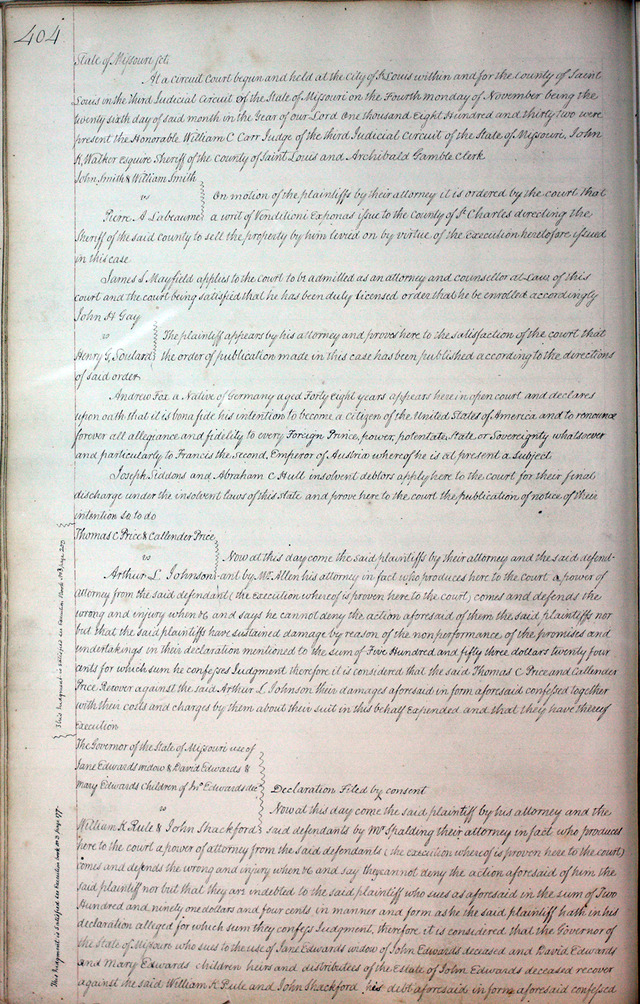 404
State of Missouri sct.
At a Circuit Court begun and held at the City of St Louis within and for the County of Saint
Louis in the third Judicial Circuit of the State of Missouri on the Fourth monday of November being the
twenty sixth day of said month in the Year of our Lord One thousand Eight Hundred and thirty two were
present the Honorable William C Carr Judge of the third Judicial Circuit of the State of Missouri, John
K. Walker esquire Sheriff of the county of Saint Louis and Archibald Gamble Clerk
John Smith & William Smith
vs On motion of the plaintiffs by their attorney it is ordered by the court that
Pierre A Labeaume a writ of Venditioni Exponas issue to the County of St Charles directing the
Sheriff of the said County to sell the property by him levied on by virtue of the Execution heretofore issued
in this case
James S. Mayfield applies to the Court to be admitted as an attorney and counsellor at Law of this
court and the court being satisfied that he has been duly licensed order that he be enrolled accordingly
John H Gay
vs The plaintiff appears by his attorney and proves here to the satisfaction of the court that
Henry G, Soulard the order of publication made in this case has been published according to the directions
of said order
Andrew Fox a Native of Germany aged Forty eight years appears here in open court and declares
upon oath that it is bona fide his intention to become a citizen of the United States of America and to renounce
forever all allegiance and fidelity to every Foreign Prince, power, potentate, State, or Sovereignty whatsoever
and particularly to Francis the Second, Emperor of Austria whereof he is at present a subject
Joseph Siddons and Abraham C Hull insolvent debtors apply here to the court for their final
discharge under the insolvent laws of this State and prove here to the court the publication of notice of their
intention so to do
Thomas C Price & Callender Price
vs Now at this day come the said plaintiffs by their attorney and the said defend-
Arthur L. Johnson -ant by Mr Allen his attorney in fact who produces here to the Court a power of
Attorney from the said defendant (the execution whereof is proven here to the court) comes and defends the
wrong and injury when &c and says he cannot deny the action aforesaid of them the said plaintiffs nor
but that the said plaintiffs have sustained damage by reason of the nonperformance of the promises and
undertakings in their declaration mentioned to the sum of Five Hundred and fifty three dollars twenty four
cents for which sum he confesses Judgment therefore it is considered that the said Thomas C Price and Callender
Price Recover against the said Arthur L Johnson their damages aforesaid in form aforesaid confessed together
with their costs and charges by them about their suit in this behalf Expended and that they have thereof
execution
This Judgment is satisfied see Execution Book page 203
The Governor of the State of Missouri use of
Jane Edwards widow & David Edwards &
Mary Edwards children of Jno Edwards decd Declaration Filed by consent
vs Now at this day come the said plaintiff by his attorney and the
William K Rule & John Shackford said defendants by Mr Spalding their attorney in fact who produces
here to the court a power of attorney from the said defendants (the execution whereof is proven here to the court)
comes and defends the wrong and injury when &c and say they cannot deny the action aforesaid of him the
said plaintiff nor but that they are indebted to the said plaintiff who sues as aforesaid in the sum of Two
Hundred and ninety one dollars and four cents in manner and form as he the said plaintiff hath in his
declaration alleged for which sum they confess Judgment, therefore it is considered that the Governor of
the State of Missouri who sues to the use of Jane Edwards widow of John Edwards deceased and David Edwards
and Mary Edwards children heirs and distributees of the Estate of John Edwards deceased recover
against the said William K Rule and John Shackford his debt aforesaid in form aforesaid confessed
This Judgment is satisfied see Execution book No 3 page 177